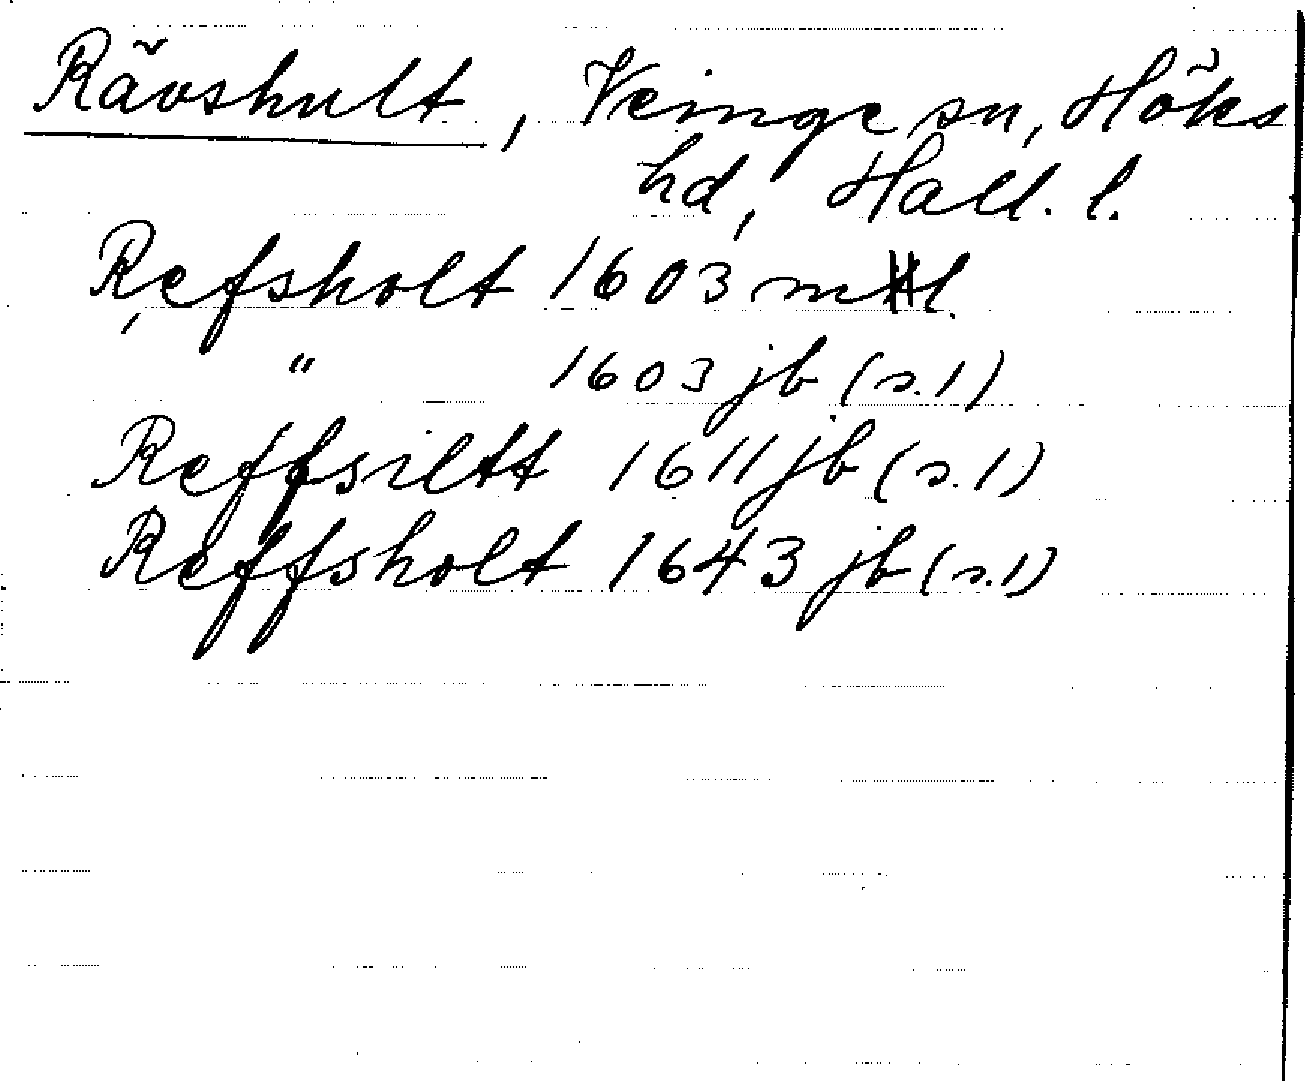 Rävshult, Veinge sn, Höks
hd, Hall. l.
Refsholt 1603 mtl.
" 1603 jb (s.1)
Reffsiltt 1611 jb (s.1)
Reffsholt 1643 jb (s.1)